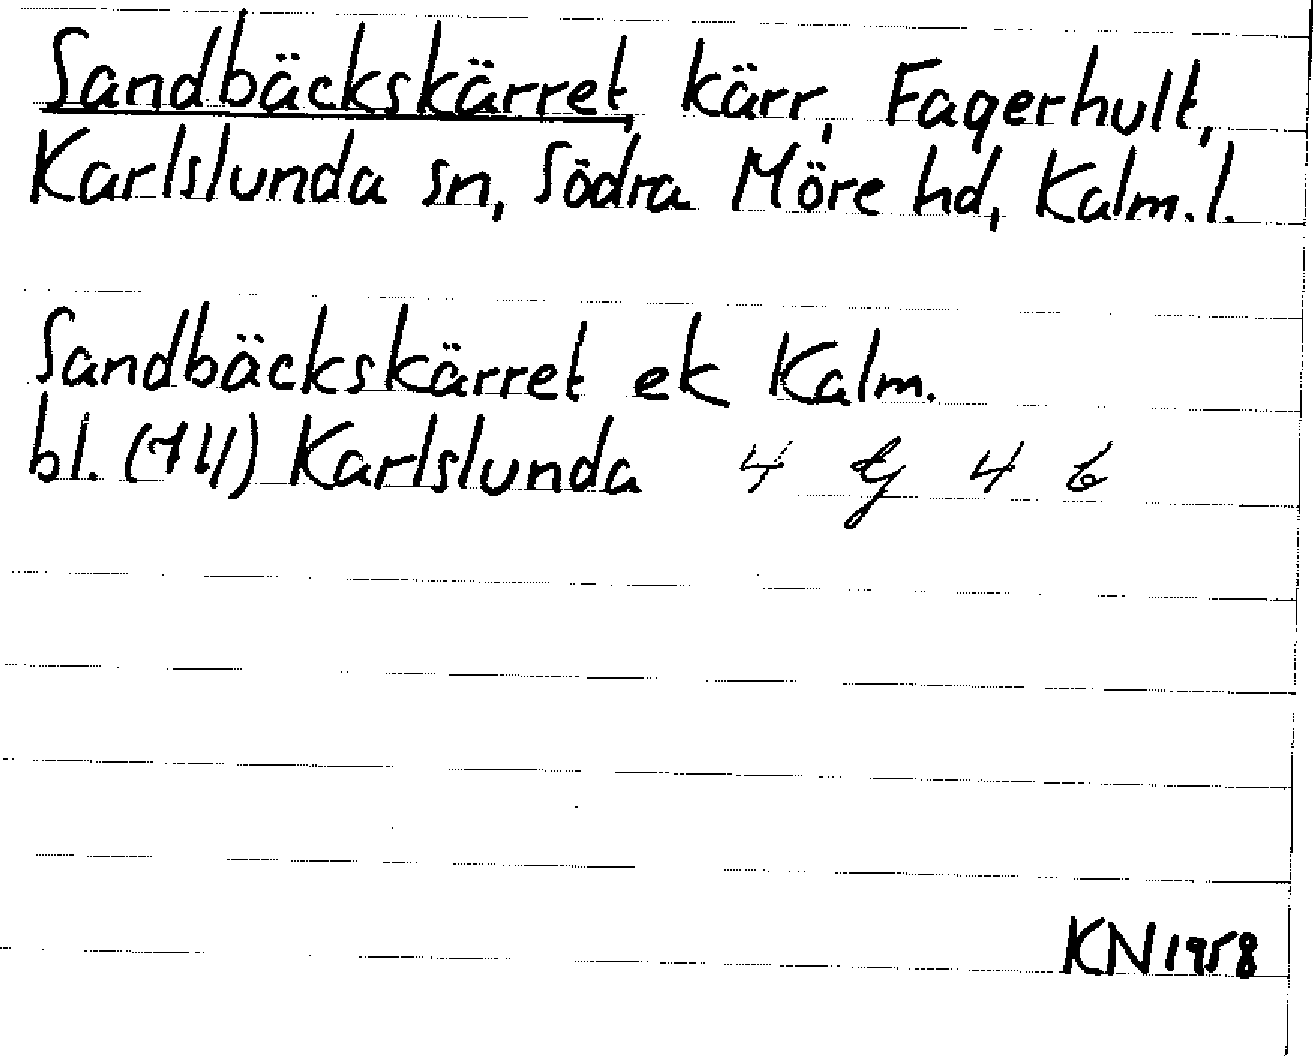 Sandbäckskärret, kärr, Fagerhult,
Karlslunda sn, Södra Möre hd, Kalm. l.
Sandbäckskärret ek Kalm.
bl. (714) Karlslunda 4 G 4 b
KN 1958